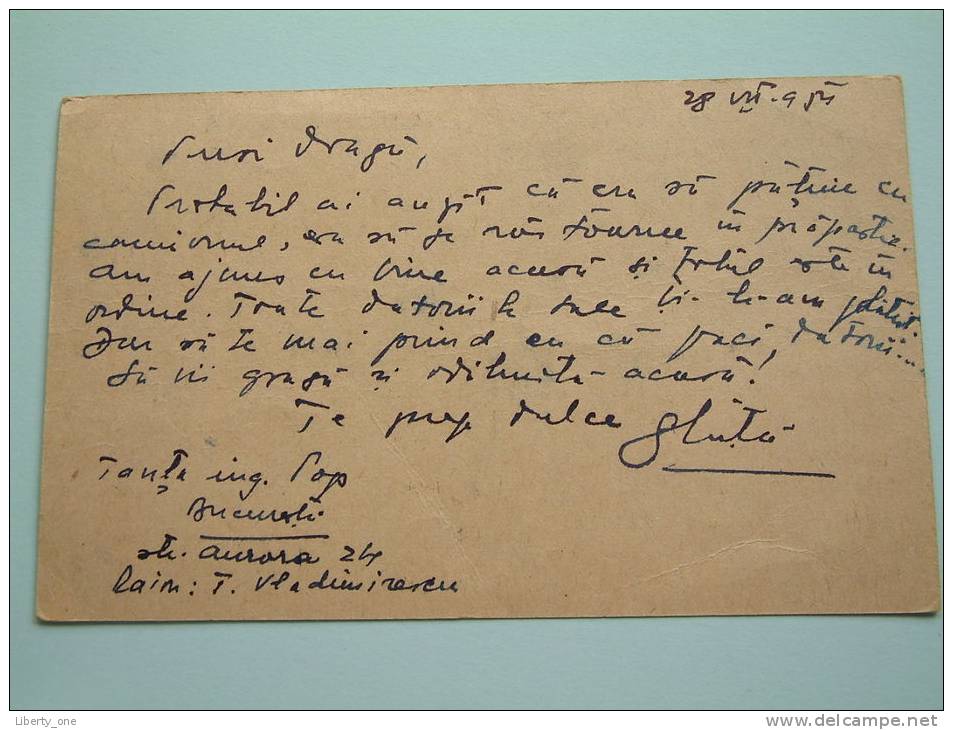 28 VII. 954
Pusi dragă,
Probabil ai auzit că era să pățim cu
camionul, era să se răstoarne în prăpastie.
Am ajuns cu bine acasă și totul este în
ordine. Toate datoriile tale ți le-am plătit.
Dar să te mai prind eu că faci, datorii...
Să vii grasă și odihnită acasă!
Te pup dulce Ghiță
Tanța ing. Pop
București
str. Aurora 24
Raion: T. Vladimirescu
Liberty_one
http://www.delcampe.net